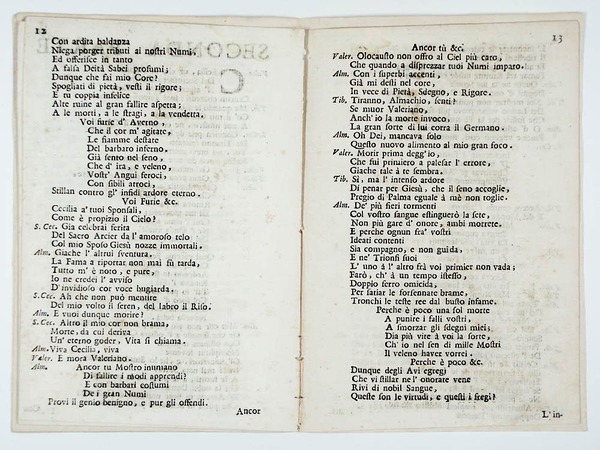 12
Con ardita baldanza
Niega porger tributi ai nostri Numi,
Ed offerisce in tanto
A falsa Deità Sabei profumi;
Dunque che fai mio Core?
Spogliati di pietà, vesti il rigore;
E tu coppia infelice
Alte ruine al gran fallire aspetta;
A le morti, a le stragi, a la vendetta.
Voi furie d' Averno,
Che il cor m' agitate,
Le fiamme destate
Del barbaro inferno.
Già sento nel seno,
Che d' ira, e veleno,
Vostr' Angui feroci,
Con sibili atroci,
Stillan contro gl' infidi ardore eterno.
Voi Furie &c.
Cecilia a' tuoi Sponsali,
Come è propizio il Cielo?
S. Cec. Già celebrai ferita
Del Sacro Arcier da l' amoroso telo
Col mio Sposo Giesù nozze immortali.
Alm. Giache l' altrui sventura,
La Fama a riportar non mai fù tarda,
Tutto m' è noto, e pure,
Io ne credei l' avviso
D' invidioso cor voce bugiarda.
S. Cec. Ah che non può mentire
Del mio volto il seren, del labro il Riso.
Alm. E vuoi dunque morire?
S. Cec. Altro il mio cor non brama,
Morte, da cui deriva
Un' eterno goder, Vita si chiama.
Alm. Viva Cecilia, viva
Valer. E mora Valeriano.
Alm. Ancor tu Mostro inumano
Di fallire i modi apprendi?
E con barbari costumi
De i gran Numi
Provi il genio benigno, e pur gli offendi.
Ancor
13
Ancor tù &c.
Valer. Olocausto non offro al Ciel più caro,
Che quando a disprezzar tuoi Numi imparo.
Alm. Con i superbi accenti,
Già mi desti nel core,
In vece di Pietà, Sdegno, e Rigore.
Tib. Tiranno, Almachio, senti?
Se muor Valeriano,
Anch' io la morte invoco,
La gran sorte di lui corra il Germano.
Alm. Oh Dei, mancava solo
Questo nuovo alimento al mio gran foco.
Valer. Morir prima degg'io,
Che fui primiero a palesar l' errore,
Giache tale à te sembra.
Tib. Sì, ma l' intenso ardore
Di penar per Giesù, che il seno accoglie,
Pregio di Palma eguale à mè non toglie.
Alm. De' più fieri tormenti
Col vostro sangue estinguerò la sete,
Non più gare d' onore, ambi morrete.
E perche ognun fra' vostri
Ideati contenti
Sia compagno, e non guida,
E ne' Trionfi suoi
L' uno à l' altro frà voi primier non vada;
Farò, ch' à un tempo istesso,
Doppio ferro omicida,
Per satiar le forsennare brame,
Tronchi le teste ree dal busto infame.
Perche è poco una sol morte
A punire i falli vostri,
A smorzar gli sdegni miei;
Dia più vite à voi la sorte,
Ch' io nel sen di mille Mostri
Il veleno haver vorrei.
Perche è poco &c.
Dunque degli Avi egregi
Che vi stillar ne l' onorate vene
Rivi di nobil Sangue,
Queste son le virtudi, e questi i fregi?
L' in-